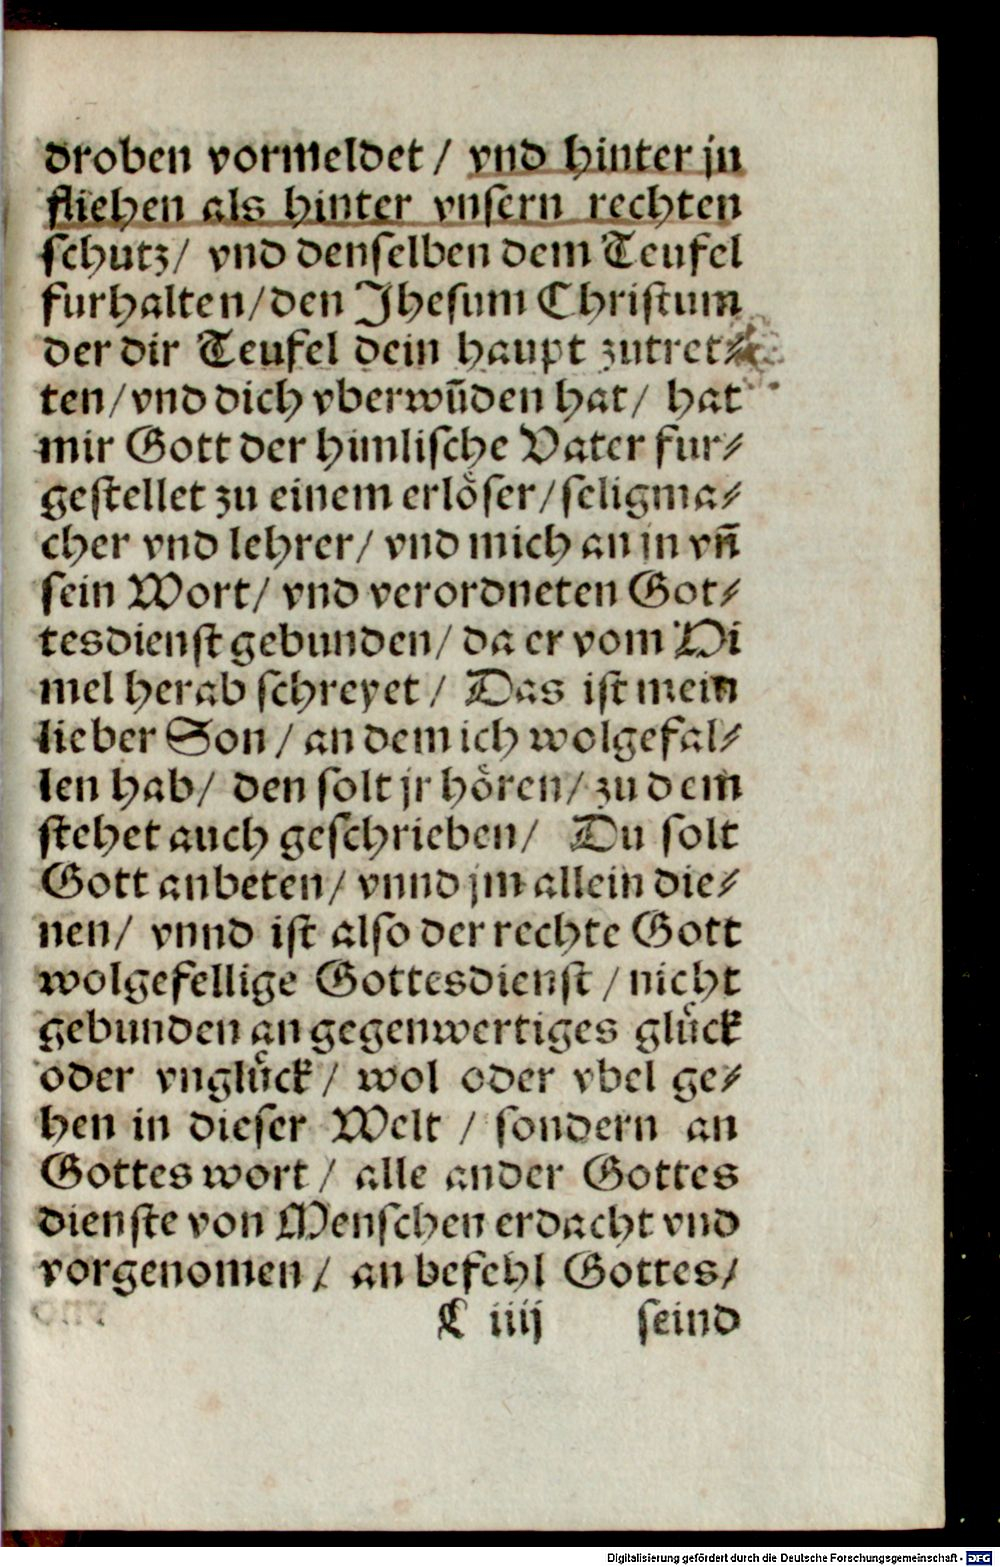 droben vormeldet / vnd hinter jn
fliehen als hinter vnsern rechten
schutz / vnd denselben dem Teufel
furhalten / den Jhesum Christum
der dir Teufel dein haupt zutret⸗
ten / vnd dich vberwũden hat / hat
mir Gott der himlische Vater fur⸗
gestellet zu einem erlöser / seligma⸗
cher vnd lehrer / vnd mich an jn vñ
sein Wort / vnd verordneten Got⸗
tesdienst gebunden / da er vom Hi
mel herab schreyet / Das ist mein
lieber Son / an dem ich wolgefal⸗
len hab / den solt jr hören / zu dem
stehet auch geschrieben / Du solt
Gott anbeten / vnnd jm allein die⸗
nen / vnnd ist also der rechte Gott
wolgefellige Gottesdienst / nicht
gebunden an gegenwertiges glück
oder vnglück / wol oder vbel ge⸗
hen in dieser Welt / sondern an
Gottes wort / alle ander Gottes
dienste von Menschen erdacht vnd
vorgenomen / an befehl Gottes /
C iiij seind
Digitalisierung gefördert durch die Deutsche Forschungsgemeinschaft - DFG